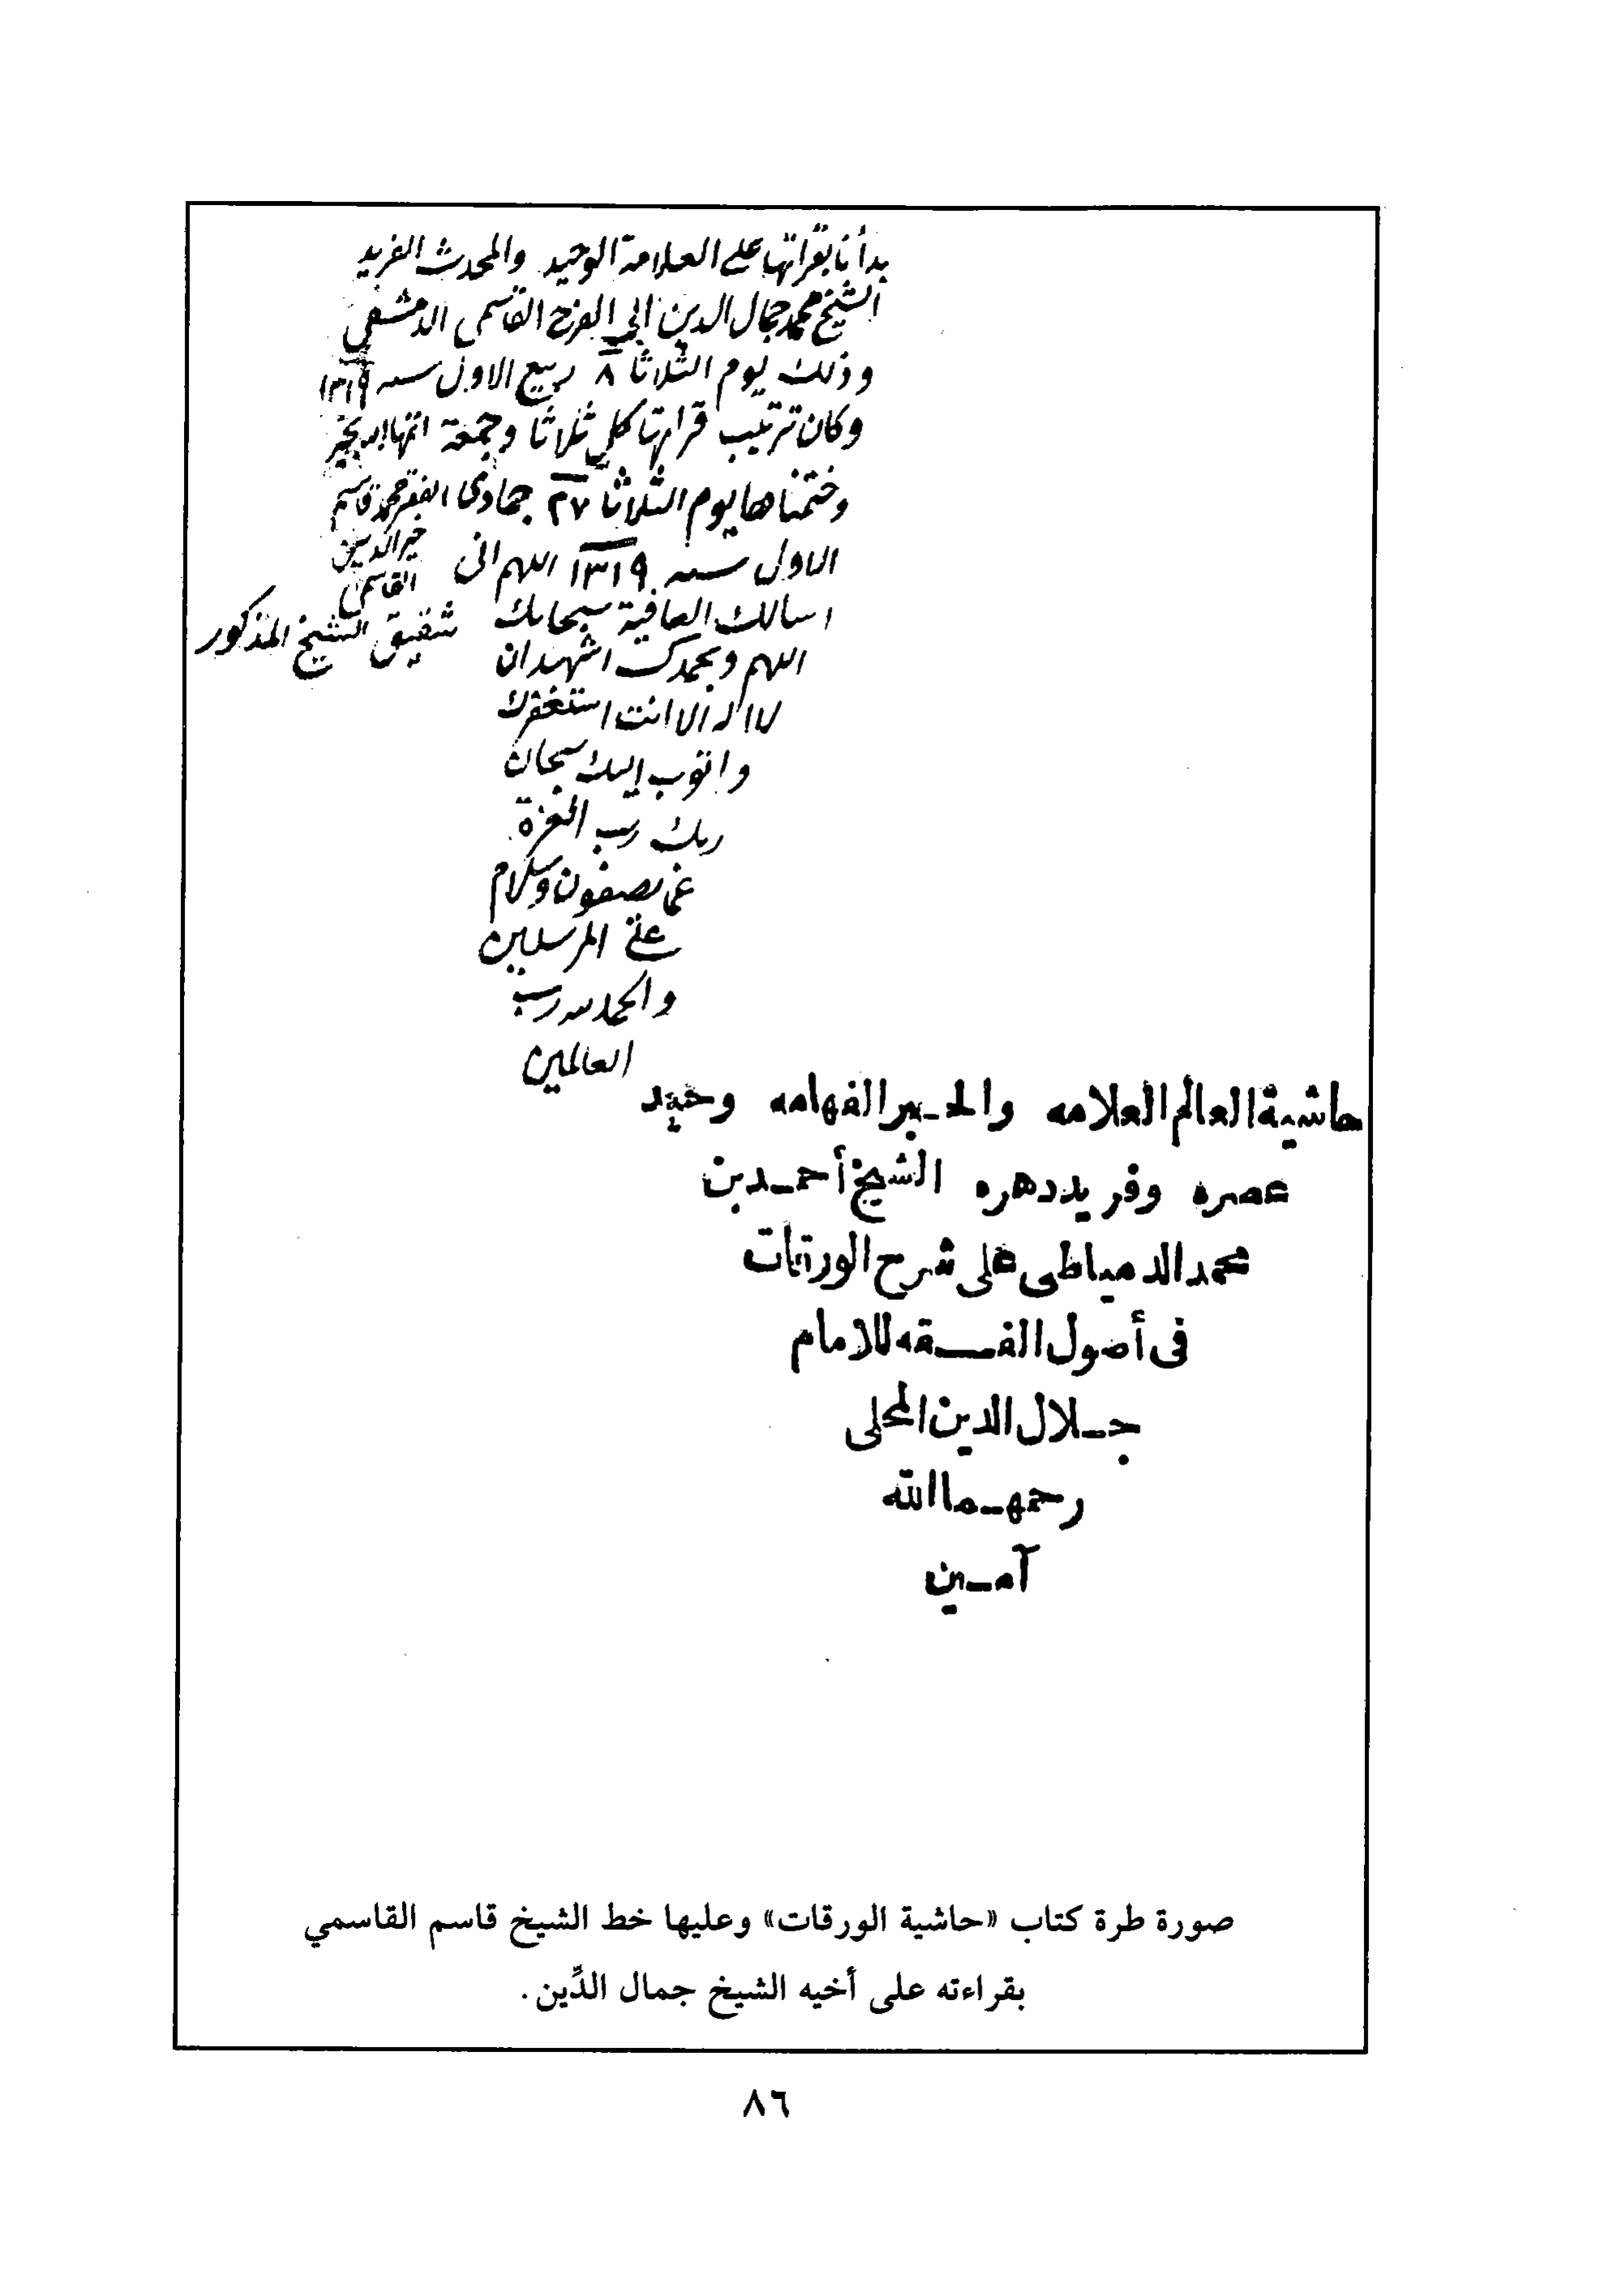 بدأنا بقرائتها على العلامة الوحيد والمحدث الفريد
الشيخ محمد جمال الدين ابي الفرج القاسمي الدمشقي
وذلك يوم الثلاثا ٨ ربيع الاول سنه ١٣١٩
وكان ترتيب قرائتها كل ثلاثا وجمعة انهاها الله بخير
وختمناها يوم الثلاثا ٢٧ جمادى
الاول سنه ١٣١٩ اللهم اني
اسالك العافية سبحانك
اللهم وبحمدك اشهد ان
لا اله الا انت استغفرك
واتوب اليك سبحان
ربك رب العزة
عما يصفون وسلام
على المرسلين
والحمد لله رب
العالمين
الفقير محمد قاسم
خير الدين
القاسمي
شقيق الشيخ المذكور
حاشية العالم العلامه والحبر الفهامه وحيد
عصره وفريد دهره الشيخ أحمد بن
محمد الدمياطى على شرح الورقات
فى أصول الفقه للامام
جلال الدين المحلى
رحمهما الله
آمين
صورة طرة كتاب «حاشية الورقات» وعليها خط الشيخ قاسم القاسمي
بقراءته على أخيه الشيخ جمال الدِّين.
٨٦